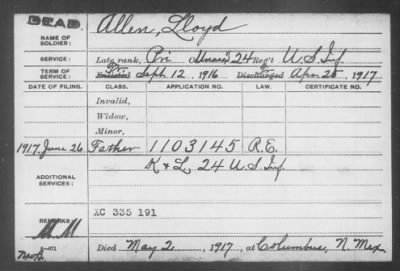 DEAD.
NAME OF SOLDIER: Allen, Lloyd
SERVICE: Late rank, Pri Unassd 24 Reg't U.S. Inf.
TERM OF SERVICE: Enlisted Sept. 12, 1916 Discharged Apr. 25, 1917
DATE OF FILING. CLASS. APPLICATION NO. LAW. CERTIFICATE NO.
Invalid,
Widow,
Minor,
1917, June 26 Father 1103145 R.E.
K & L 24 U S Inf.
ADDITIONAL SERVICES:
XC 335 191
REMARKS:
Died May 2, 1917, at Columbus, N. Mex